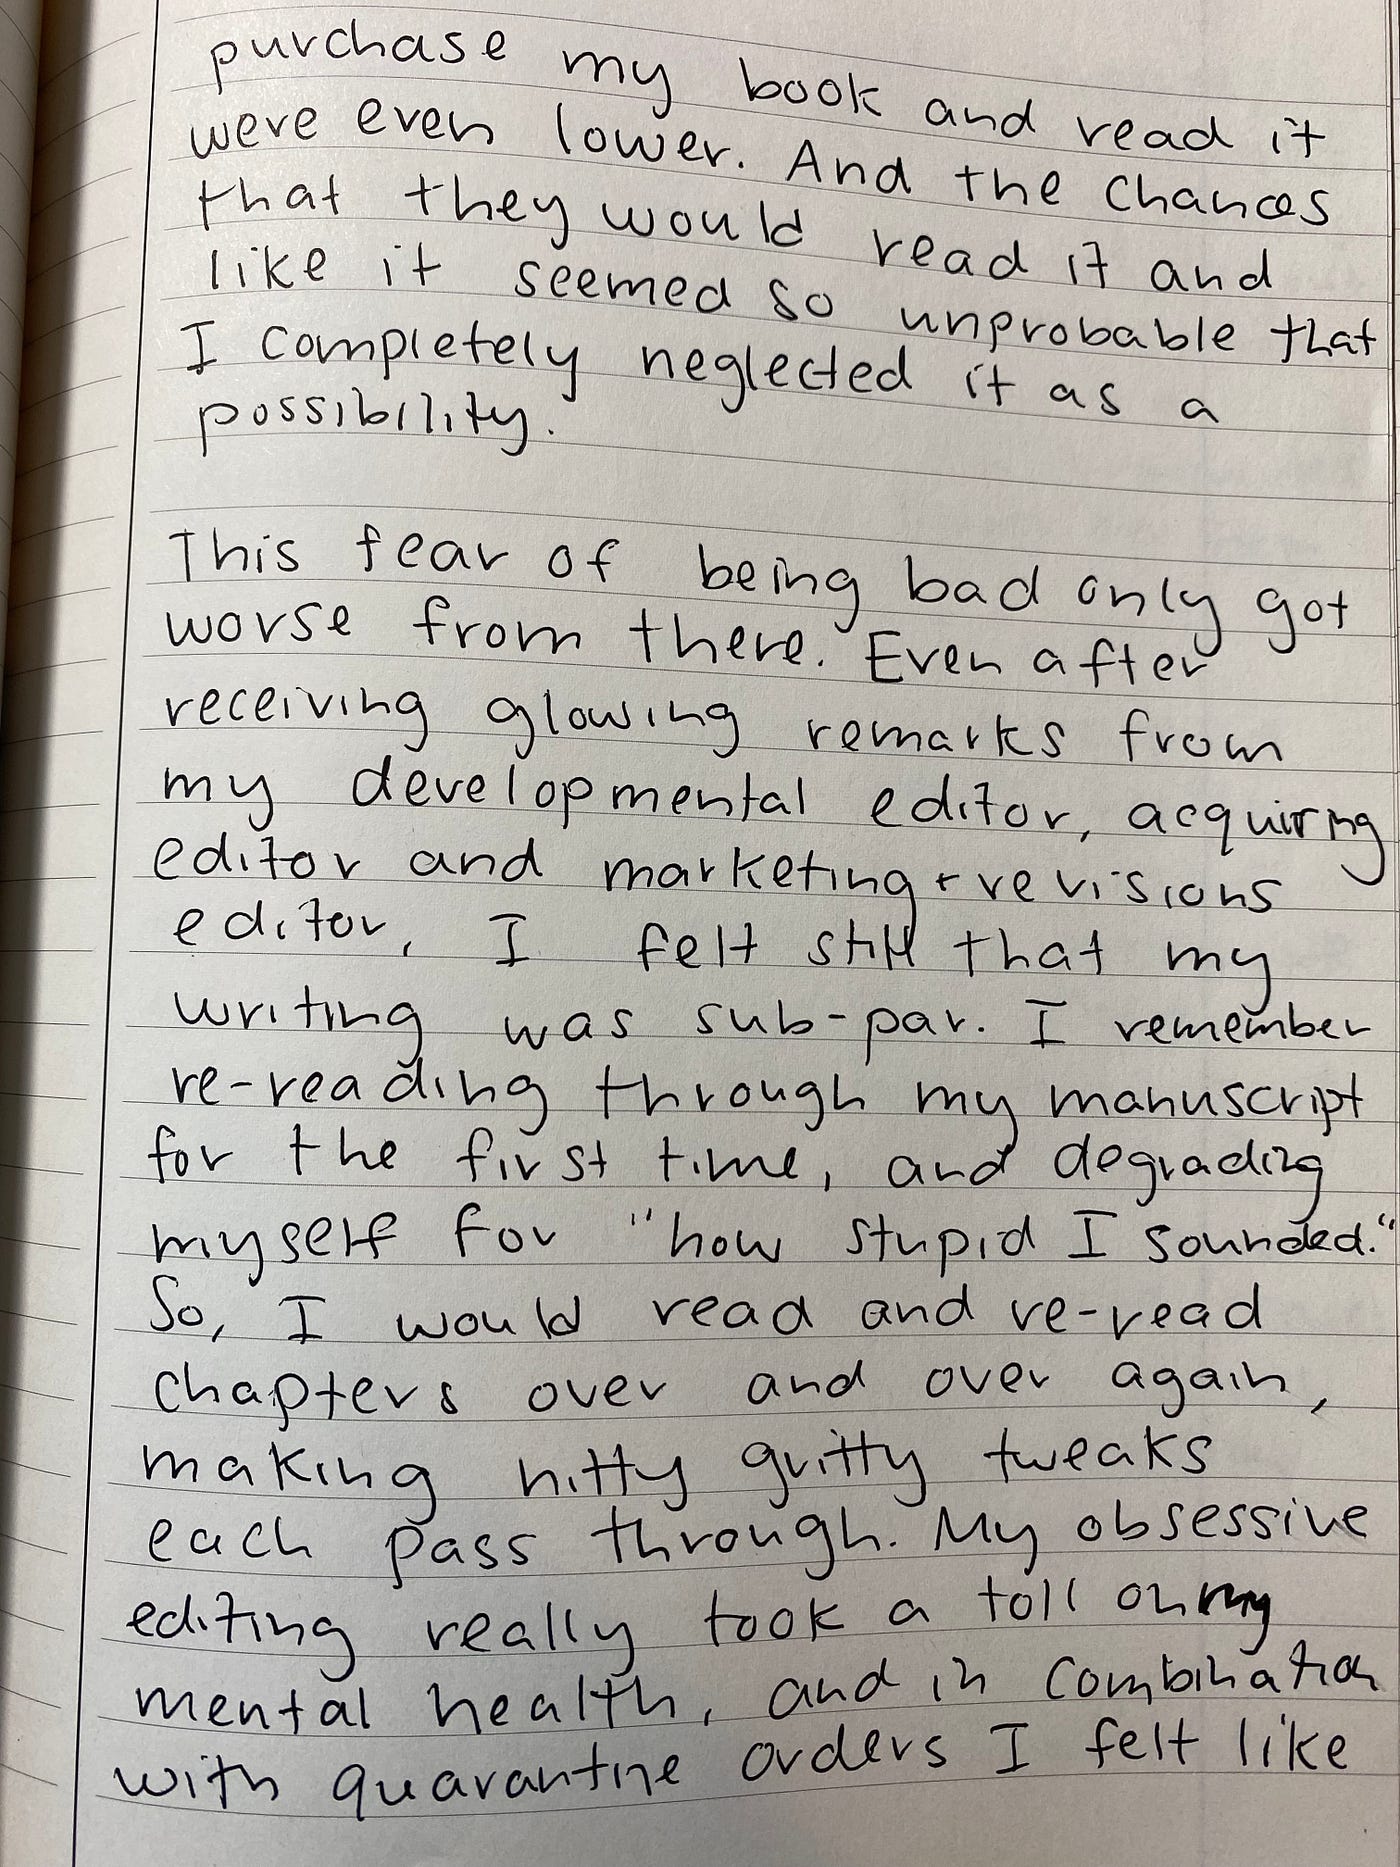 purchase my book and read it
were even lower. And the chances
that they would read it and
like it seemed so unprobable that
I completely neglected it as a
possibility.
This fear of being bad only got
worse from there. Even after
receiving glowing remarks from
my developmental editor, acquiring
editor and marketing + revisions
editor, I felt still that my
writing was sub-par. I remember
re-reading through my manuscript
for the first time, and degrading
myself for "how stupid I sounded."
So, I would read and re-read
chapters over and over again,
making nitty gritty tweaks
each pass through. My obsessive
editing really took a toll on my
mental health, and in combination
with quarantine orders I felt like